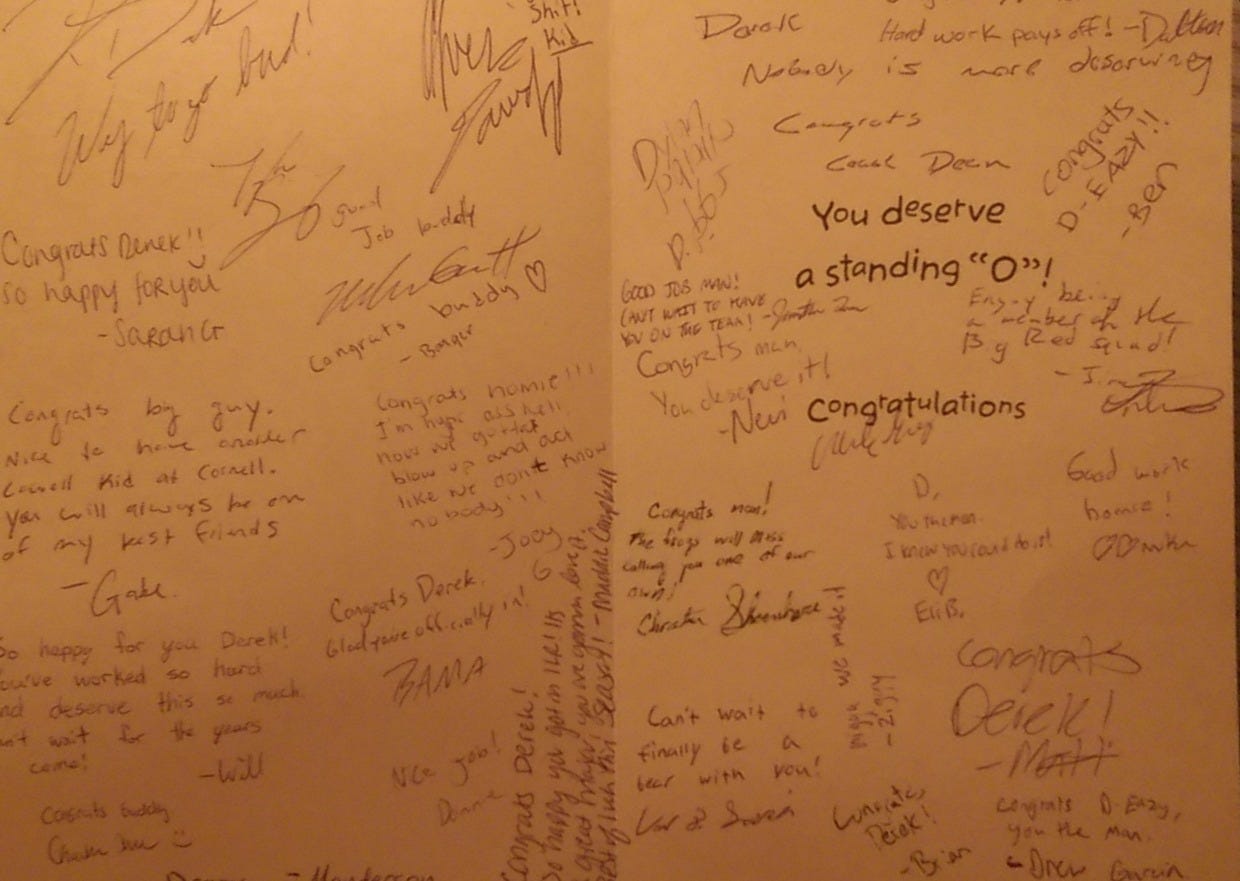 Way to go bud!
Shit!
Kid
good
Job buddy
Congrats Derek!!
So happy for you
-Sarah G
Congrats buddy ♡
- Banger
Congrats big guy.
Nice to have another
Lowell Kid at Cornell.
you will always be on
of my best friends
- Gabe
Congrats homie!!!
I'm hype ass hell
now we gotta
blow up and act
like we don't know
nobody!!!
-Joey
G
Congrats Derek.
Glad you're officially in!
BAMA
So happy for you Derek!
You've worked so hard
and deserve this so much.
wait for the years
come!
-Will
Nice job!
Donnie
Congrats buddy
Congrats Derek!
So happy you got in IKR! It's
a great thing! you're gonna love it.
Best of luck this season! - Maddie Campbell
- Henderson
Derek
Hard work pays off! -Dalton
Nobody is more deserving
Congrats
Coach Dean
Congrats
D-EAZY!!
-Ben
Dylan
D.
You deserve
a standing “O”!
GOOD JOB MAN!
CAN'T WAIT TO HAVE
YOU ON THE TEAM! -Jonathan
Enjoy being
a member of the
Big Red squad!
Congrats man.
You deserve it!
Congratulations
Congrats man!
The frogs will miss
calling you one of our
own!
Christian
D,
You the man.
I knew you could do it!
♡
Eli B.
Good work
homie!
♡♡ Mike
we made it
-Ziggy
Congrats
Derek!
-Matt
Can't wait to
finally be a
bear with you!
Congrats
Derek!
-Brian
Congrats D-Eazy,
you the man.
- Drew Garcia